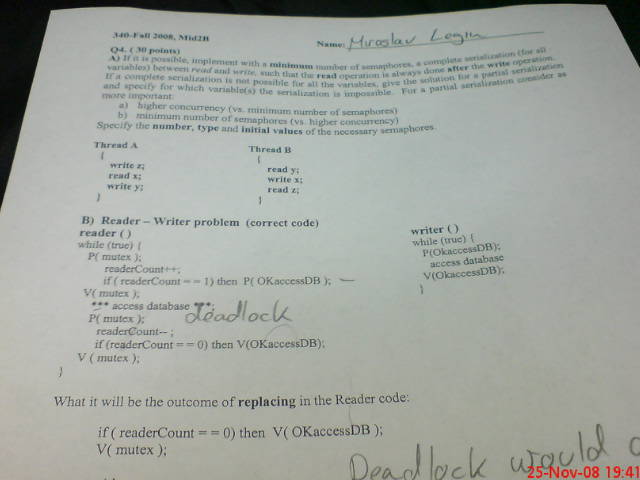 340-Fall 2008, Mid2B
Name: Miroslav Login
Q4. ( 30 points)
A) If it is possible, implement with a minimum number of semaphores, a complete serialization (for all
variables) between read and write, such that the read operation is always done after the write operation.
If a complete serialization is not possible for all the variables, give the solution for a partial serialization
and specify for which variable(s) the serialization is impossible. For a partial serialization consider as
more important:
a) higher concurrency (vs. minimum number of semaphores)
b) minimum number of semaphores (vs. higher concurrency)
Specify the number, type and initial values of the necessary semaphores.
Thread A
{
write z;
read x;
write y;
}
Thread B
{
read y;
write x;
read z;
}
B) Reader – Writer problem (correct code)
reader ()
while (true) {
P( mutex );
readerCount++;
if ( readerCount == 1) then P( OKaccessDB );
V( mutex );
*** access database ***;
deadlock
P( mutex );
readerCount-- ;
if (readerCount == 0) then V(OKaccessDB);
V ( mutex );
}
writer ()
while (true) {
P(OkaccessDB);
access database
V(OKaccessDB);
}
What it will be the outcome of replacing in the Reader code:
if ( readerCount == 0) then V( OKaccessDB );
V( mutex );
Deadlock would
25-Nov-08 19:41